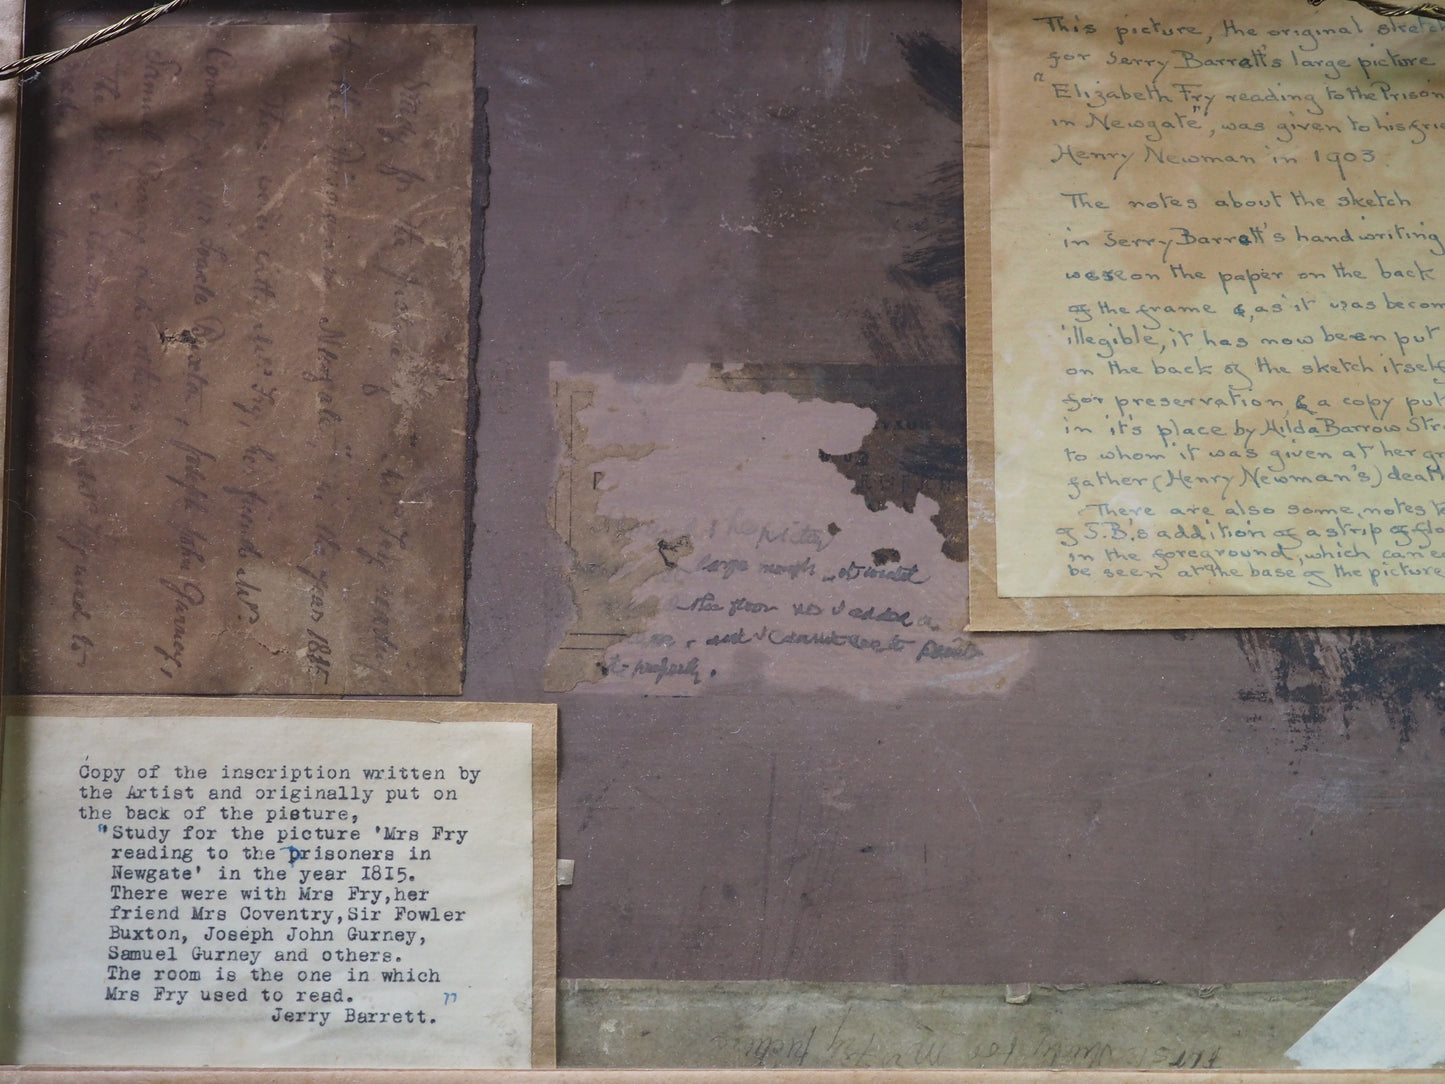 Study for the picture of Mrs Fry reading
to the Prisoners in Newgate, in the year 1815
There were with Mrs Fry, her friend Mrs
Coventry, Sir Fowler Buxton, Joseph John Gurney,
Samuel Gurney and others
The room is the one
used to
This picture, the original sketch
for Jerry Barrett's large picture
"Elizabeth Fry reading to the Prison
in Newgate", was given to his frie
Henry Newman in 1903.
The notes about the sketch
in Jerry Barrett's handwriting
were on the paper on the back
of the frame &, as it was becom
illegible, it has now been put
on the back of the sketch itself
for preservation, & a copy put
in it's place by Hilda Barrow Str
to whom it was given at her gr
father (Henry Newman's) death
There are also some notes
of J.B.'s addition of a strip of flo
in the foreground, which can
be seen at the base of the picture
the picture
large enough
the floor so I added a
and I cannot
properly.
Copy of the inscription written by
the Artist and originally put on
the back of the pisture,
"Study for the picture 'Mrs Fry
reading to the prisoners in
Newgate' in the year 1815.
There were with Mrs Fry,her
friend Mrs Coventry,Sir Fowler
Buxton, Joseph John Gurney,
Samuel Gurney and others.
The room is the one in which
Mrs Fry used to read. "
Jerry Barrett.
First study for Mrs Fry picture